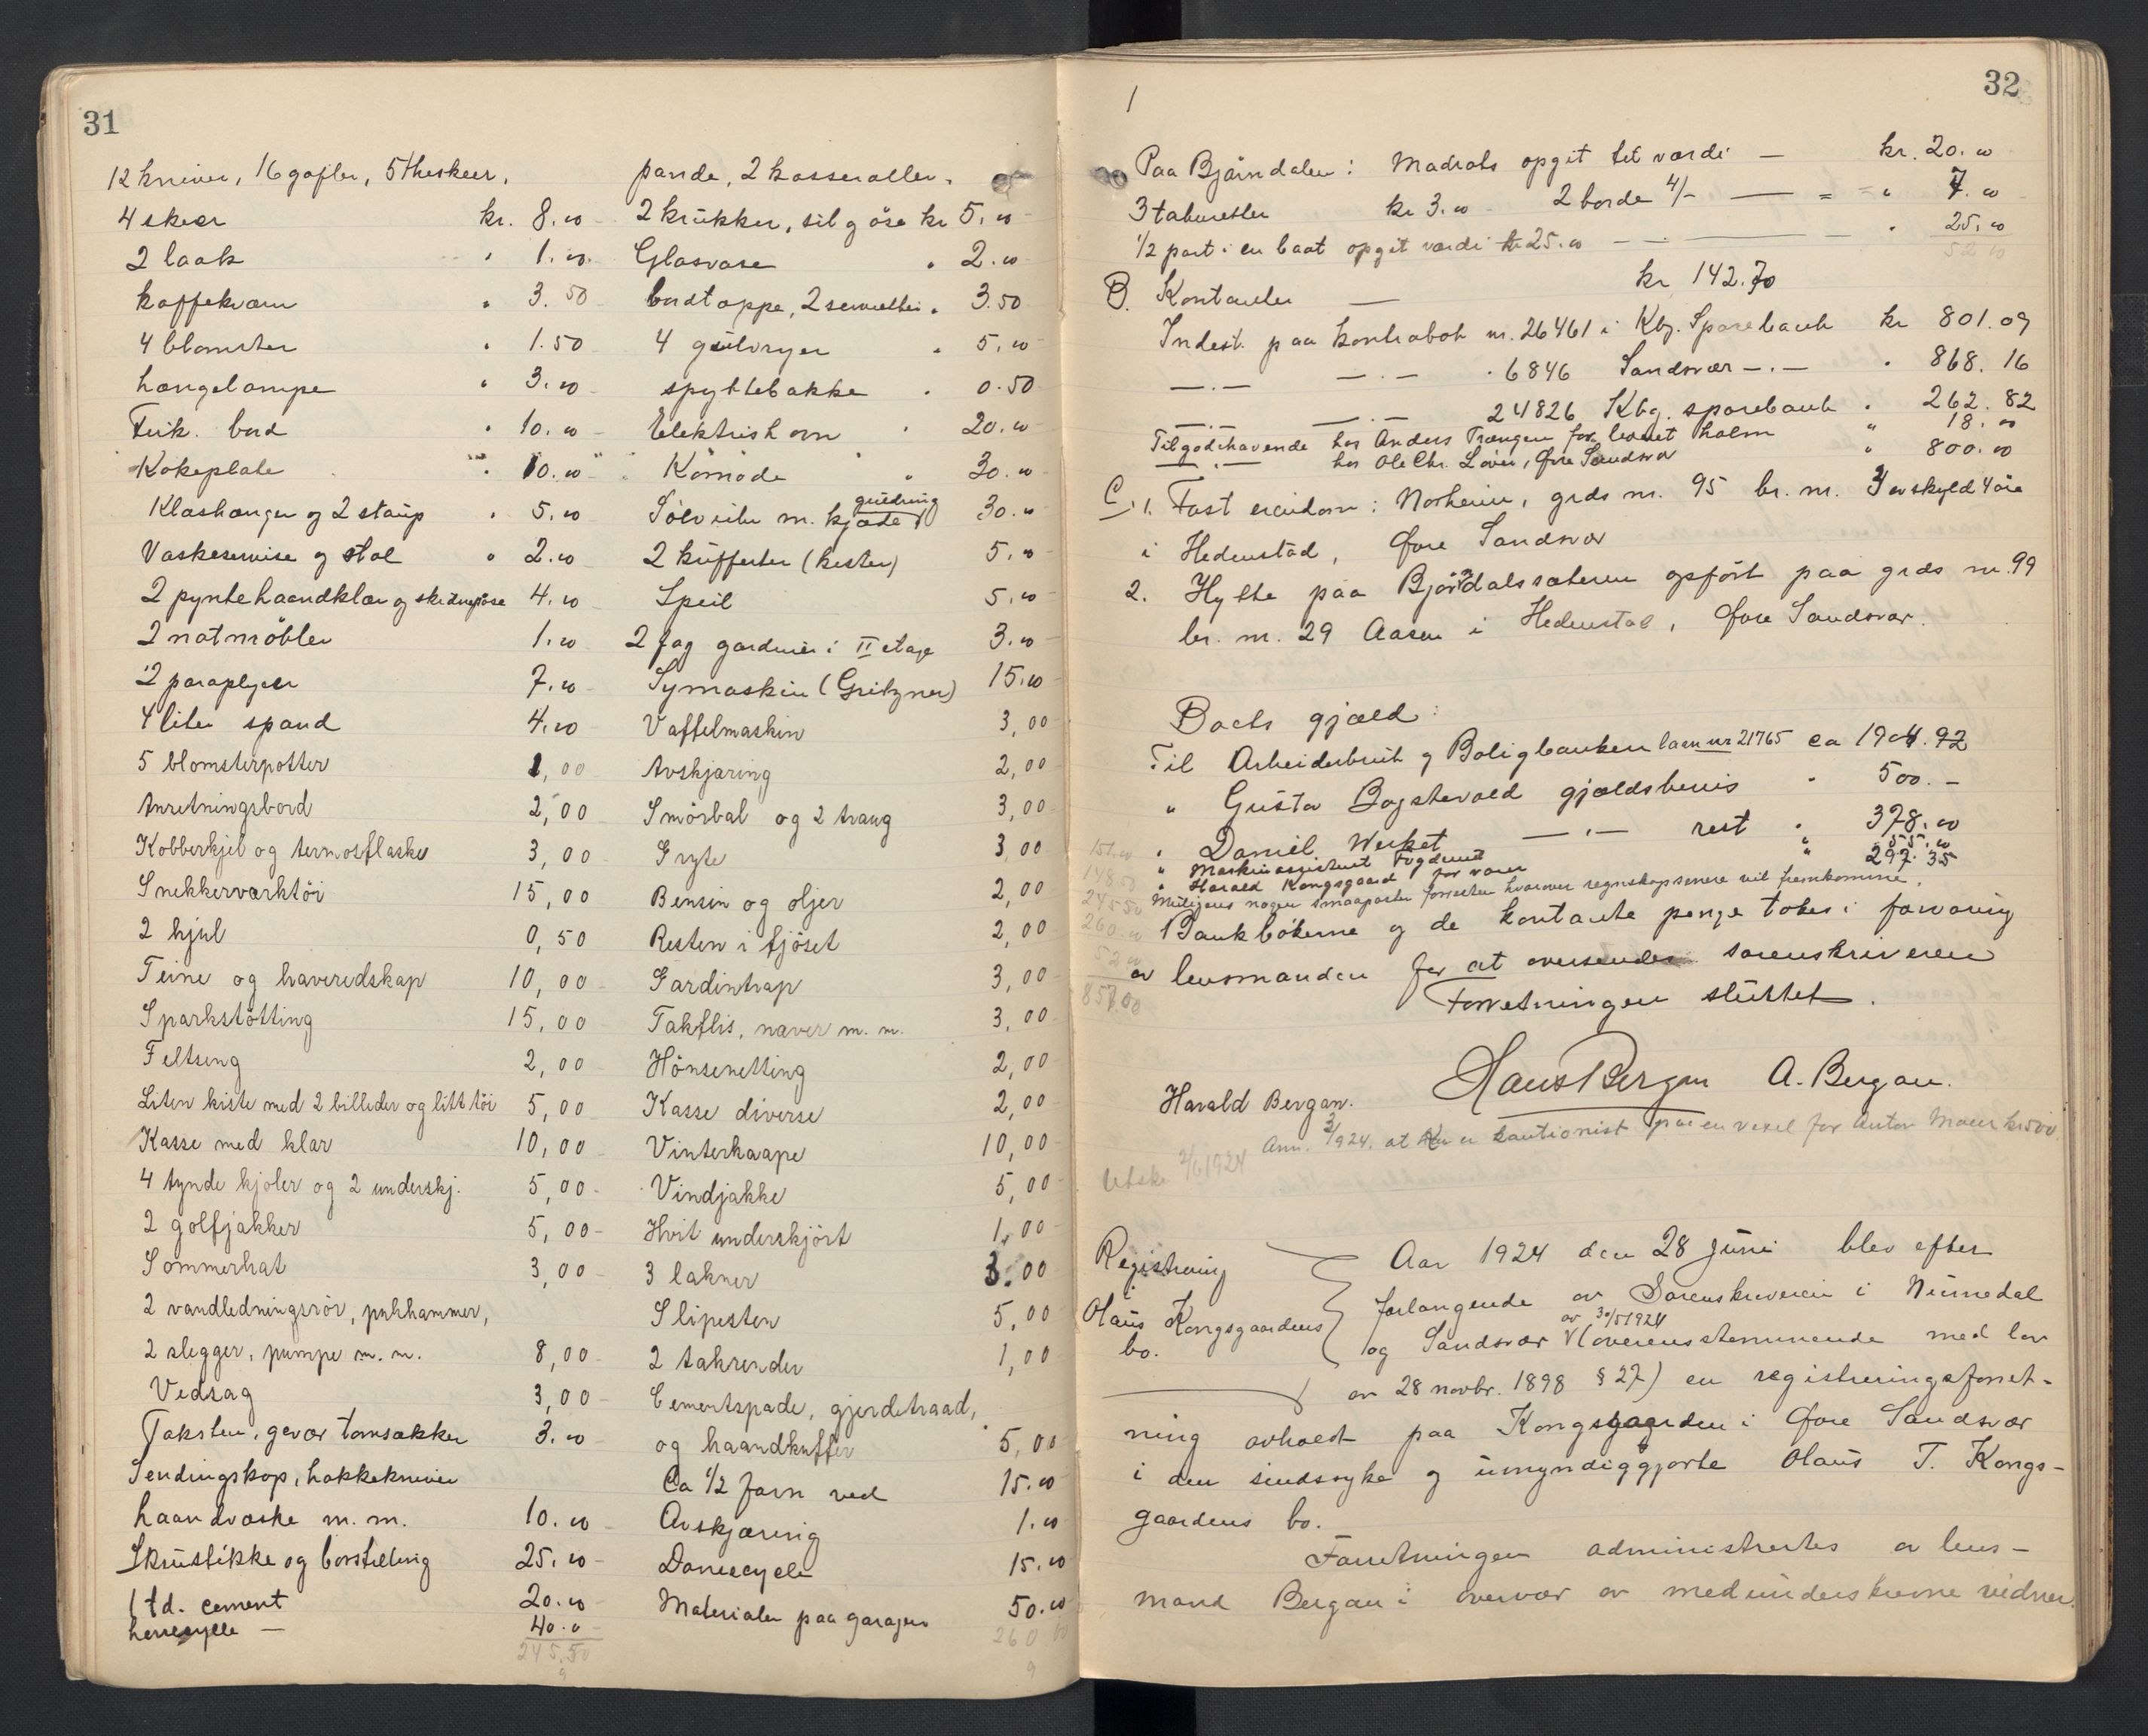 31
12 kniver, 16 gafler, 5 theskeer,
4 skeer kr. 8.00
2 laak " 1.00
kaffekvern " 3.50
4 blomster " 1.50
hængelampe " 3.00
Firk. bord " 10.00
Kokeplate " 10.00
Klæshænger og 2 staup " 5.00
Vaskeservise og stol " 2.00
2 pyntehaandklær og 4.00
2 natmöbler 1.00
2 paraplyer 7.00
4 liter spand 4.00
5 blomsterpotter 1,00
Anretningsbord 2,00
Kobberkjel og termosflaske 3,00
Snekkerværktöi 15,00
2 hjul 0,50
Teine og haveredskap 10,00
Sparkstötting 15,00
Feltseng 2,00
Liten kiste med 2 billeder og litt töi 5,00
Kasse med klær 10,00
4 tynde kjoler og 2 underskj. 5,00
2 golfjakker 5,00
Sommerhat 3,00
2 vandledningsrör, pukhammer,
2 slegger, pumpe m. m. 8,00
Vedsag 3,00
Taksten, gevær tomsækker 3.00
Sendingskop, hakkekniver
haandvæske m. m. 10.00
Skrustikke og 25.00
1 td. cement 20.00
herrecykle — 40.00
245.50
pande, 2 kasseroller,
2 krukker, sil g öse kr 5.00
Glasvase " 2.00
bordtoppe, 2 servietter " 3.50
4 gulvryer " 5.00
spyttebakke " 0.50
Elektrisk ovn " 20.00
Komode " 30.00
guldring
Sölvuhr m. kjæde V 30.00
2 kufferter (kister) 5.00
Speil 5.00
2 fag gardiner i II etage 3.00
Symaskin (Gritzner) 15.00
Vaffelmaskin 3,00
Avskjæring 2,00
Smörbal og 2 traug 3,00
Gryte 3,00
Bensin og oljer 2,00
Resten i fjöset 2,00
Gardintrap 3,00
Takflis, næver m. m. 3,00
Hönsenetting 2,00
Kasse diverse 2,00
Vinterkaape 10,00
Vindjakke 5,00
Hvit underskjört 1,00
3 lakner 3.00
Slipesten 5,00
2 takrender 1,00
Cementspade, gjerdetraad,
og haandkuffer 5,00
Ca 1/2 favn ved 15.00
Avskjæring 1.00
Damecycle 15.00
Materialer paa garagen 50.00
260.00
32
Paa Bjørndalen: Madrats opgit til værdi — kr. 20.00
3 taburetter kr 3.00 2 borde 4/- — = " 7.00
1/2 part i en baat opgit værdi kr 25.00 — " 25.00
52.00
B. Kontanter — kr 142.70
Indest. paa kontrabok nr. 26461 i Kbg. Sparebank kr 801.09
—.— —.— " 6846 Sandsvær —.— " 868.16
—.— —.— 24826 Kbg. sparebank " 262.82
Tilgodehavende hos Anders Trængen for leveret halm " 18.00
—.— hos Ole Chr. Løver, Øvre Sandsvær " 800.00
C. 1. Fast eiendom: Norheim, grds nr. 95 br. nr. 3 av skyld 4 öre
i Hedenstad, Øvre Sandsvær
2. Hytte paa Bjørndalssæteren opfört paa grds nr. 99
br. nr. 29 Aasen i Hedenstad, Øvre Sandsvær.
Boets gjæld:
Til Arbeiderbruk g Boligbanken laan nr 21765 ca 1904.92
" Gustav Bogstevold gjældsbevis " 500.—
" Daniel Werket —.— rest " 378.00
" Maskinassistent Fogderud " 55.00
" Harald Kongsgaard for varer " 297.35
Muligens nogen smaaposter forresten hvorover regnskap senere vil fremkomme.
151.00
148.50
245.50
260.00
52.00
857.00
Bankbökerne og de kontante penge tokes i forvaring
av lensmanden for at oversendes sorenskriveren
Forretningen sluttet.
Hans Bergan A. Bergan.
Harald Bergan.
Anm. 2/7 1924. at er kautionist paa en vexel for Anton Moen kr 500
Utskr. 2/6 1924
Registrering
i
Olaus Kongsgaardens
bo.
Aar 1924 den 28 juni blev efter
forlangende av Sorenskriveren i Numedal
av 30/5 1924
og Sandsvær V (overensstemmende med lov
av 28 novbr. 1898 § 27) en registreringsforret-
ning avholdt paa Kongsgaarden i Øvre Sandsvær
i den sindssyke g umyndiggjorte Olaus T. Kongs-
gaardens bo.
Forretningen administrertes av lens-
mand Bergan i overvær av medunderskrevne vidner.